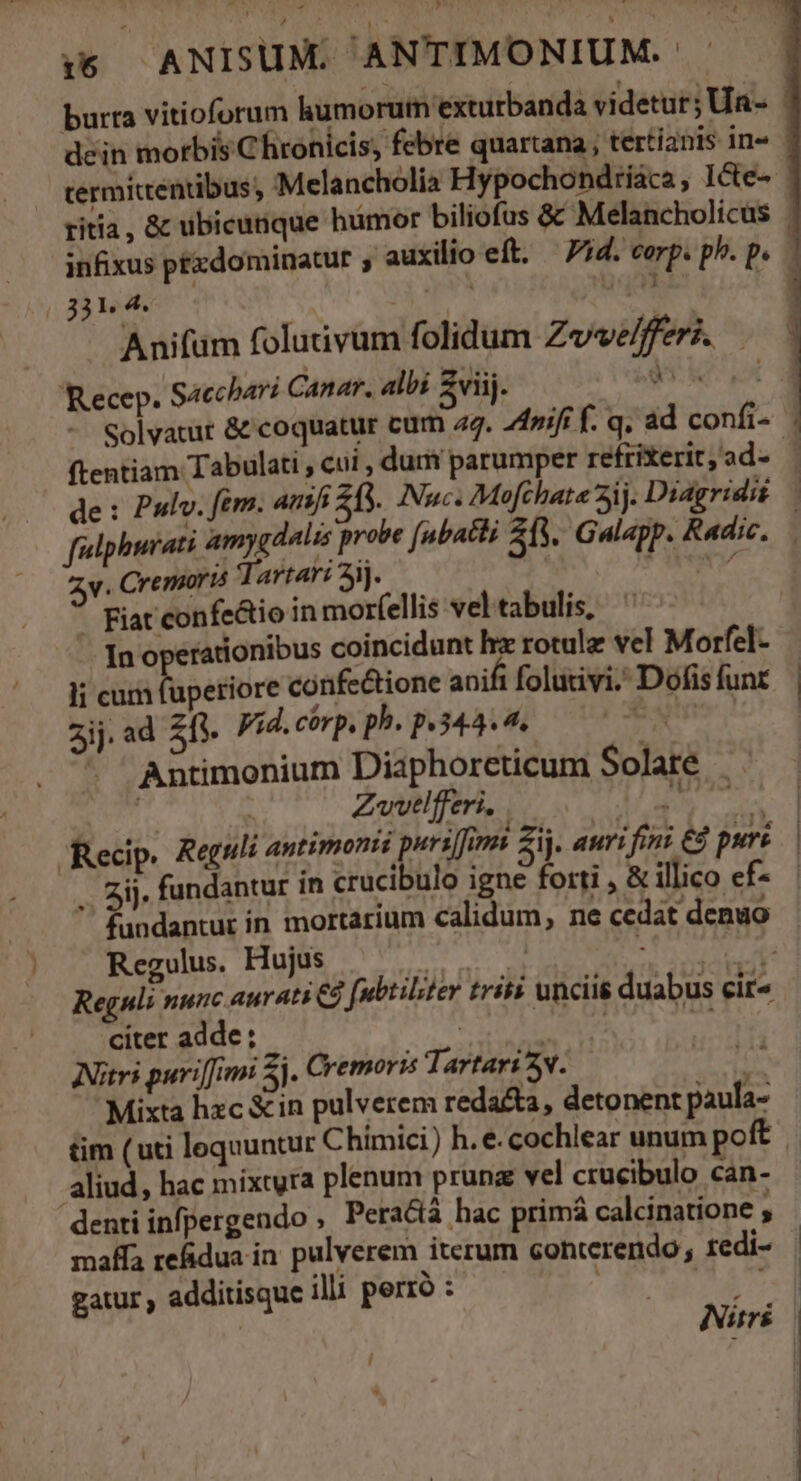 16 ANISUM. ANTIMONIUM.
burra vitioſorum humorum exturbanda videtur; Un-
dein morbis Chronicis, febre quartana, tertianis in-
termittentibus, Melancholia Hypochondriaca, Icte-
ritia, & ubicunque humor bilioſus & Melancholicus
infixus prædominatur, auxilio eſt. Vid. corp. ph. p.
331. 4.
Aniſum ſolutivum ſolidum Zvvelfferi.
Recep. Sacchari Canar. albi ℥viij.
Solvatur & coquatur cum aq. Aniſi ſ. q. ad conſi-
ſtentiam Tabulati, cui, dum parumper refrixerit, ad-
de: Pulv. ſem. aniſi ℥ß. Nuc. Moſchatæ ʒij. Diagridii
ſulphurati amygdalis probe ſubacti ℥ß. Galapp. Radic.
ʒv. Cremoris Tartari ʒij.
Fiat confectio in morſellis vel tabulis,
In operationibus coincidunt hæ rotulæ vel Morſel-
li cum ſuperiore confectione aniſi ſolutivi. Doſis ſunt
ʒij. ad ℥ß. Vid. corp. ph. p. 344. 4.
Antimonium Diaphoreticum Solare
Zvvelfferi.
Recip. Reguli antimonii puriſſimi ℥ij. auri fini & puri
ʒij. fundantur in crucibulo igne forti, & illico ef-
fundantur in mortarium calidum, ne cedat denuo
Regulus. Hujus
Reguli nunc aurati & ſubtiliter triti unciis duabus cir-
citer adde:
Nitri puriſſimi ℥j. Cremoris Tartari ʒv.
Mixta hæc & in pulverem redacta, detonent paula-
tim (uti loquuntur Chimici) h. e. cochlear unum poſt
aliud, hac mixtura plenum prunæ vel crucibulo can-
denti inſpergendo, Peractâ hac primâ calcinatione,
maſſa reſidua in pulverem iterum conterendo, redi-
gatur, additisque illi porrò:
Nitri